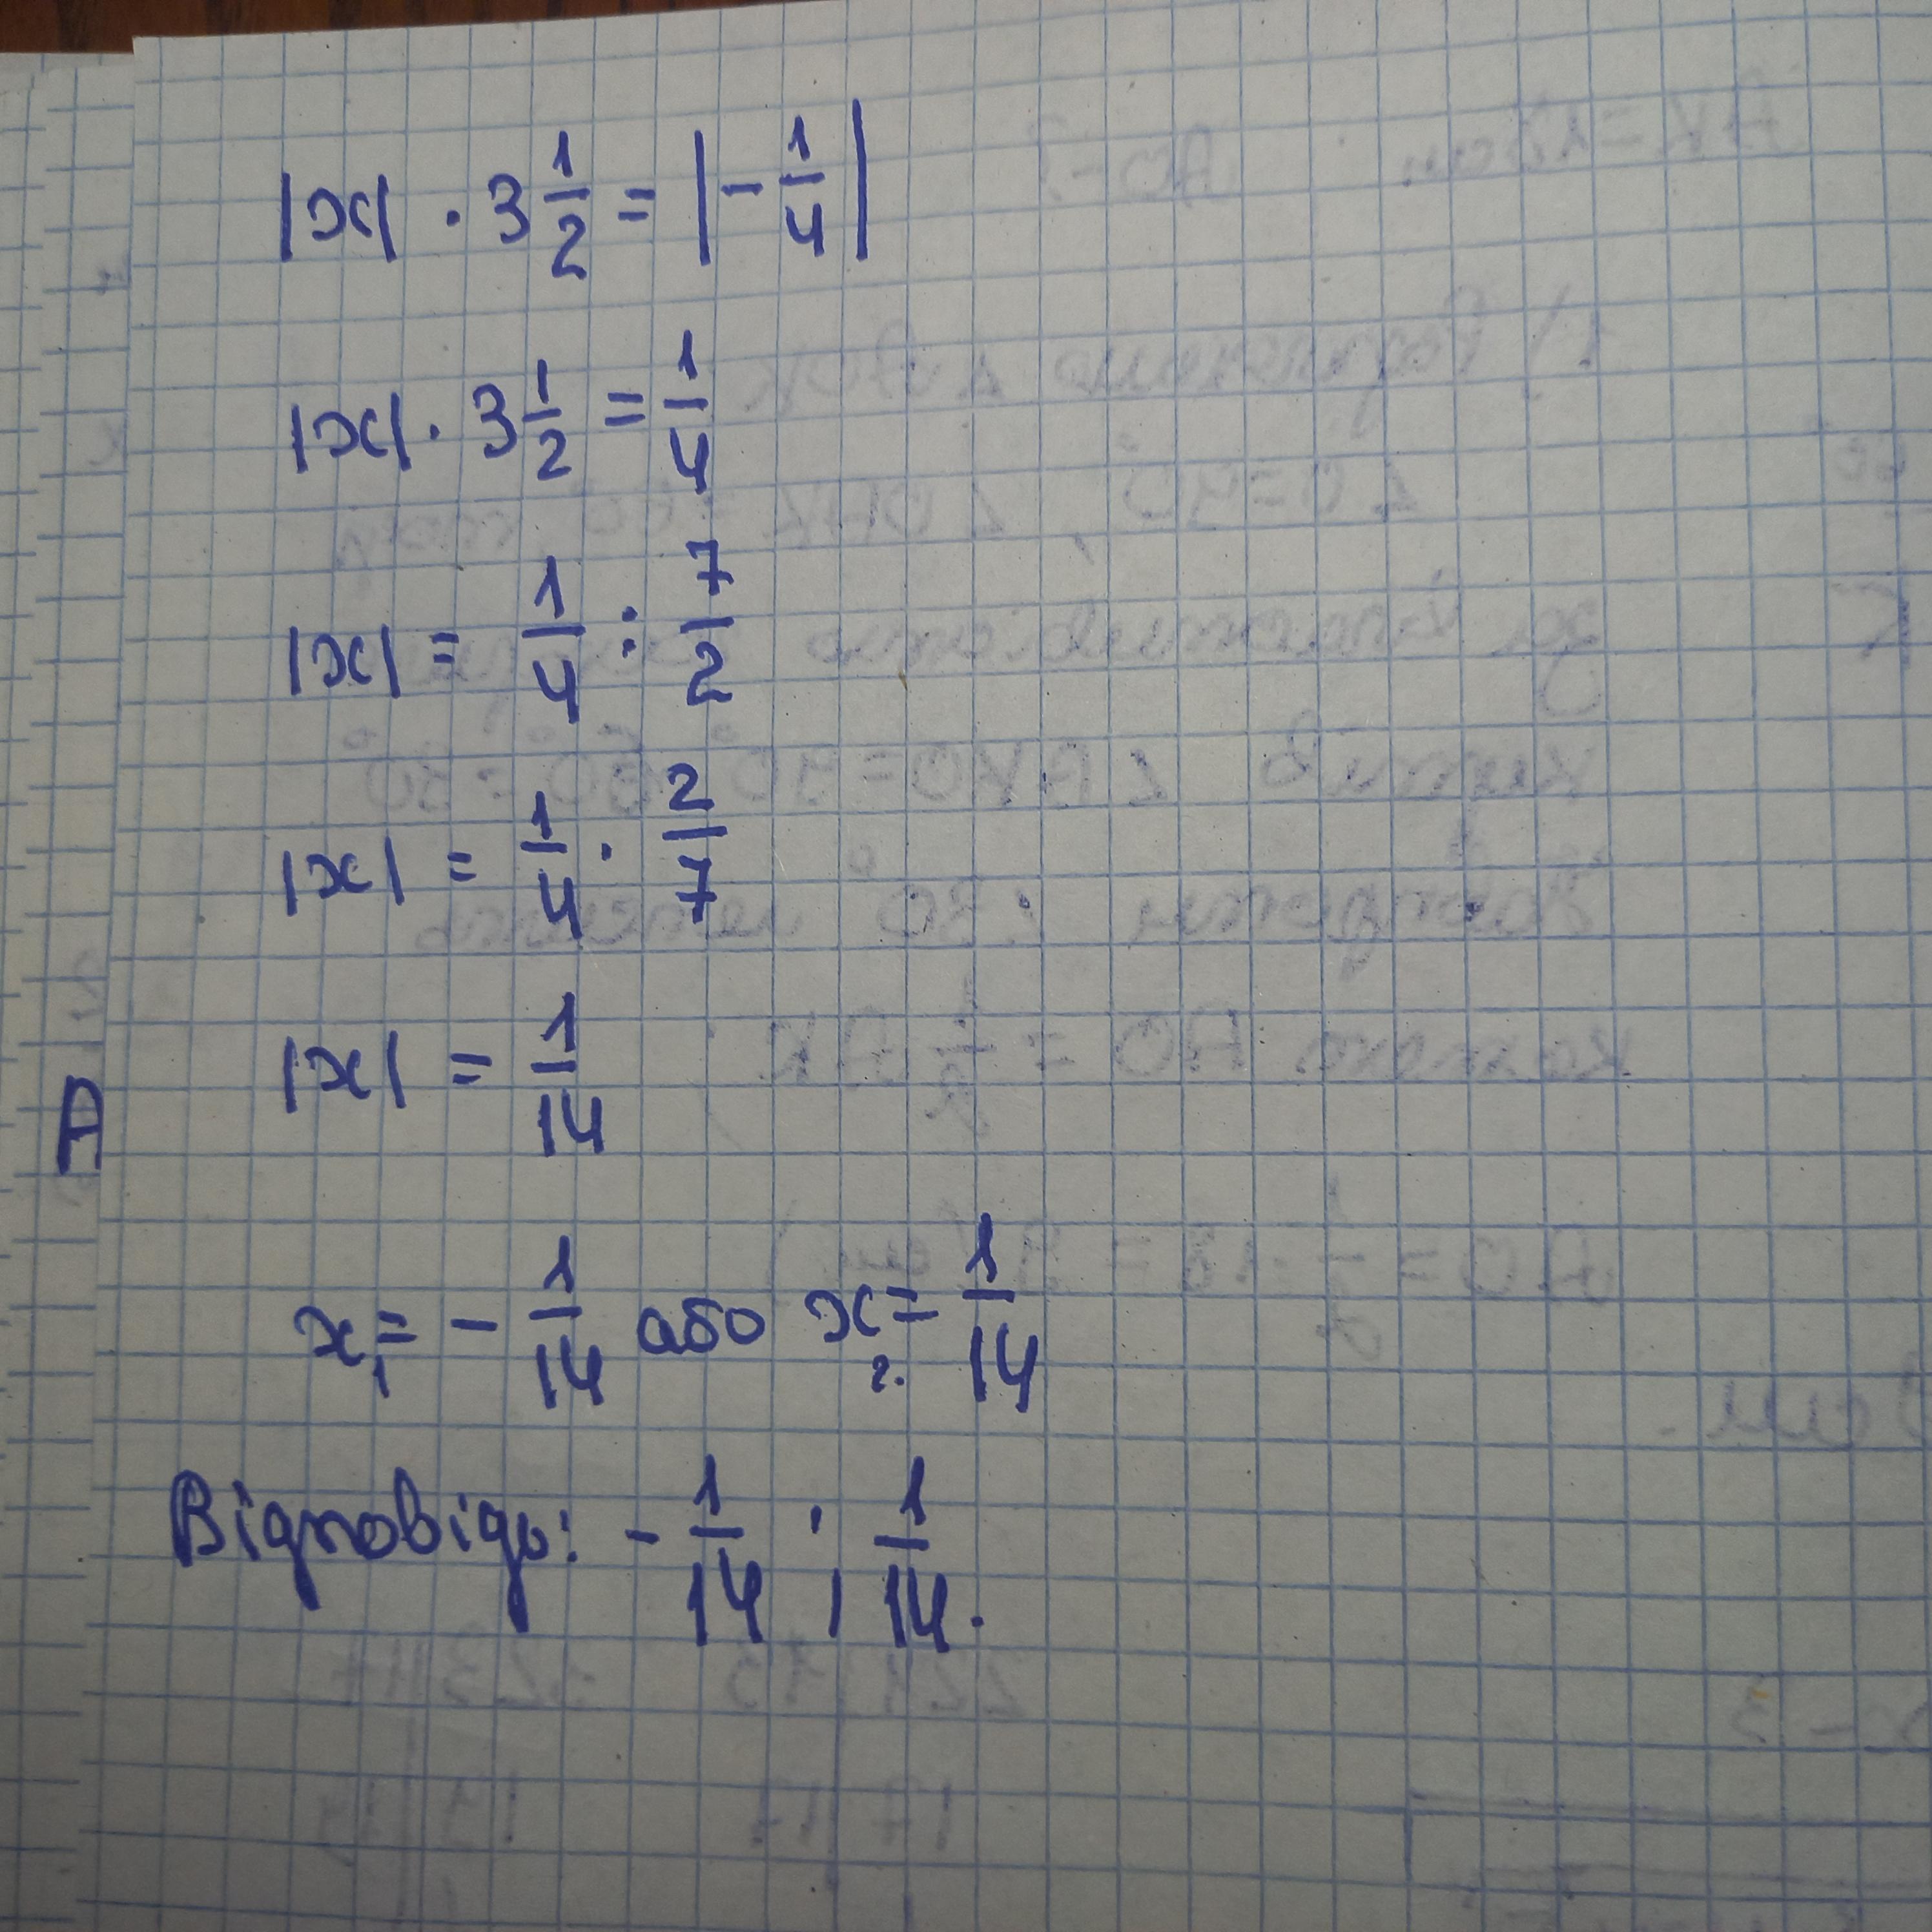 |x| · 3 1/2 = |- 1/4|
|x| · 3 1/2 = 1/4
|x| = 1/4 : 7/2
|x| = 1/4 · 2/7
|x| = 1/14
x₁ = - 1/14 або x₂ = 1/14
Відповідь: - 1/14 ; 1/14.